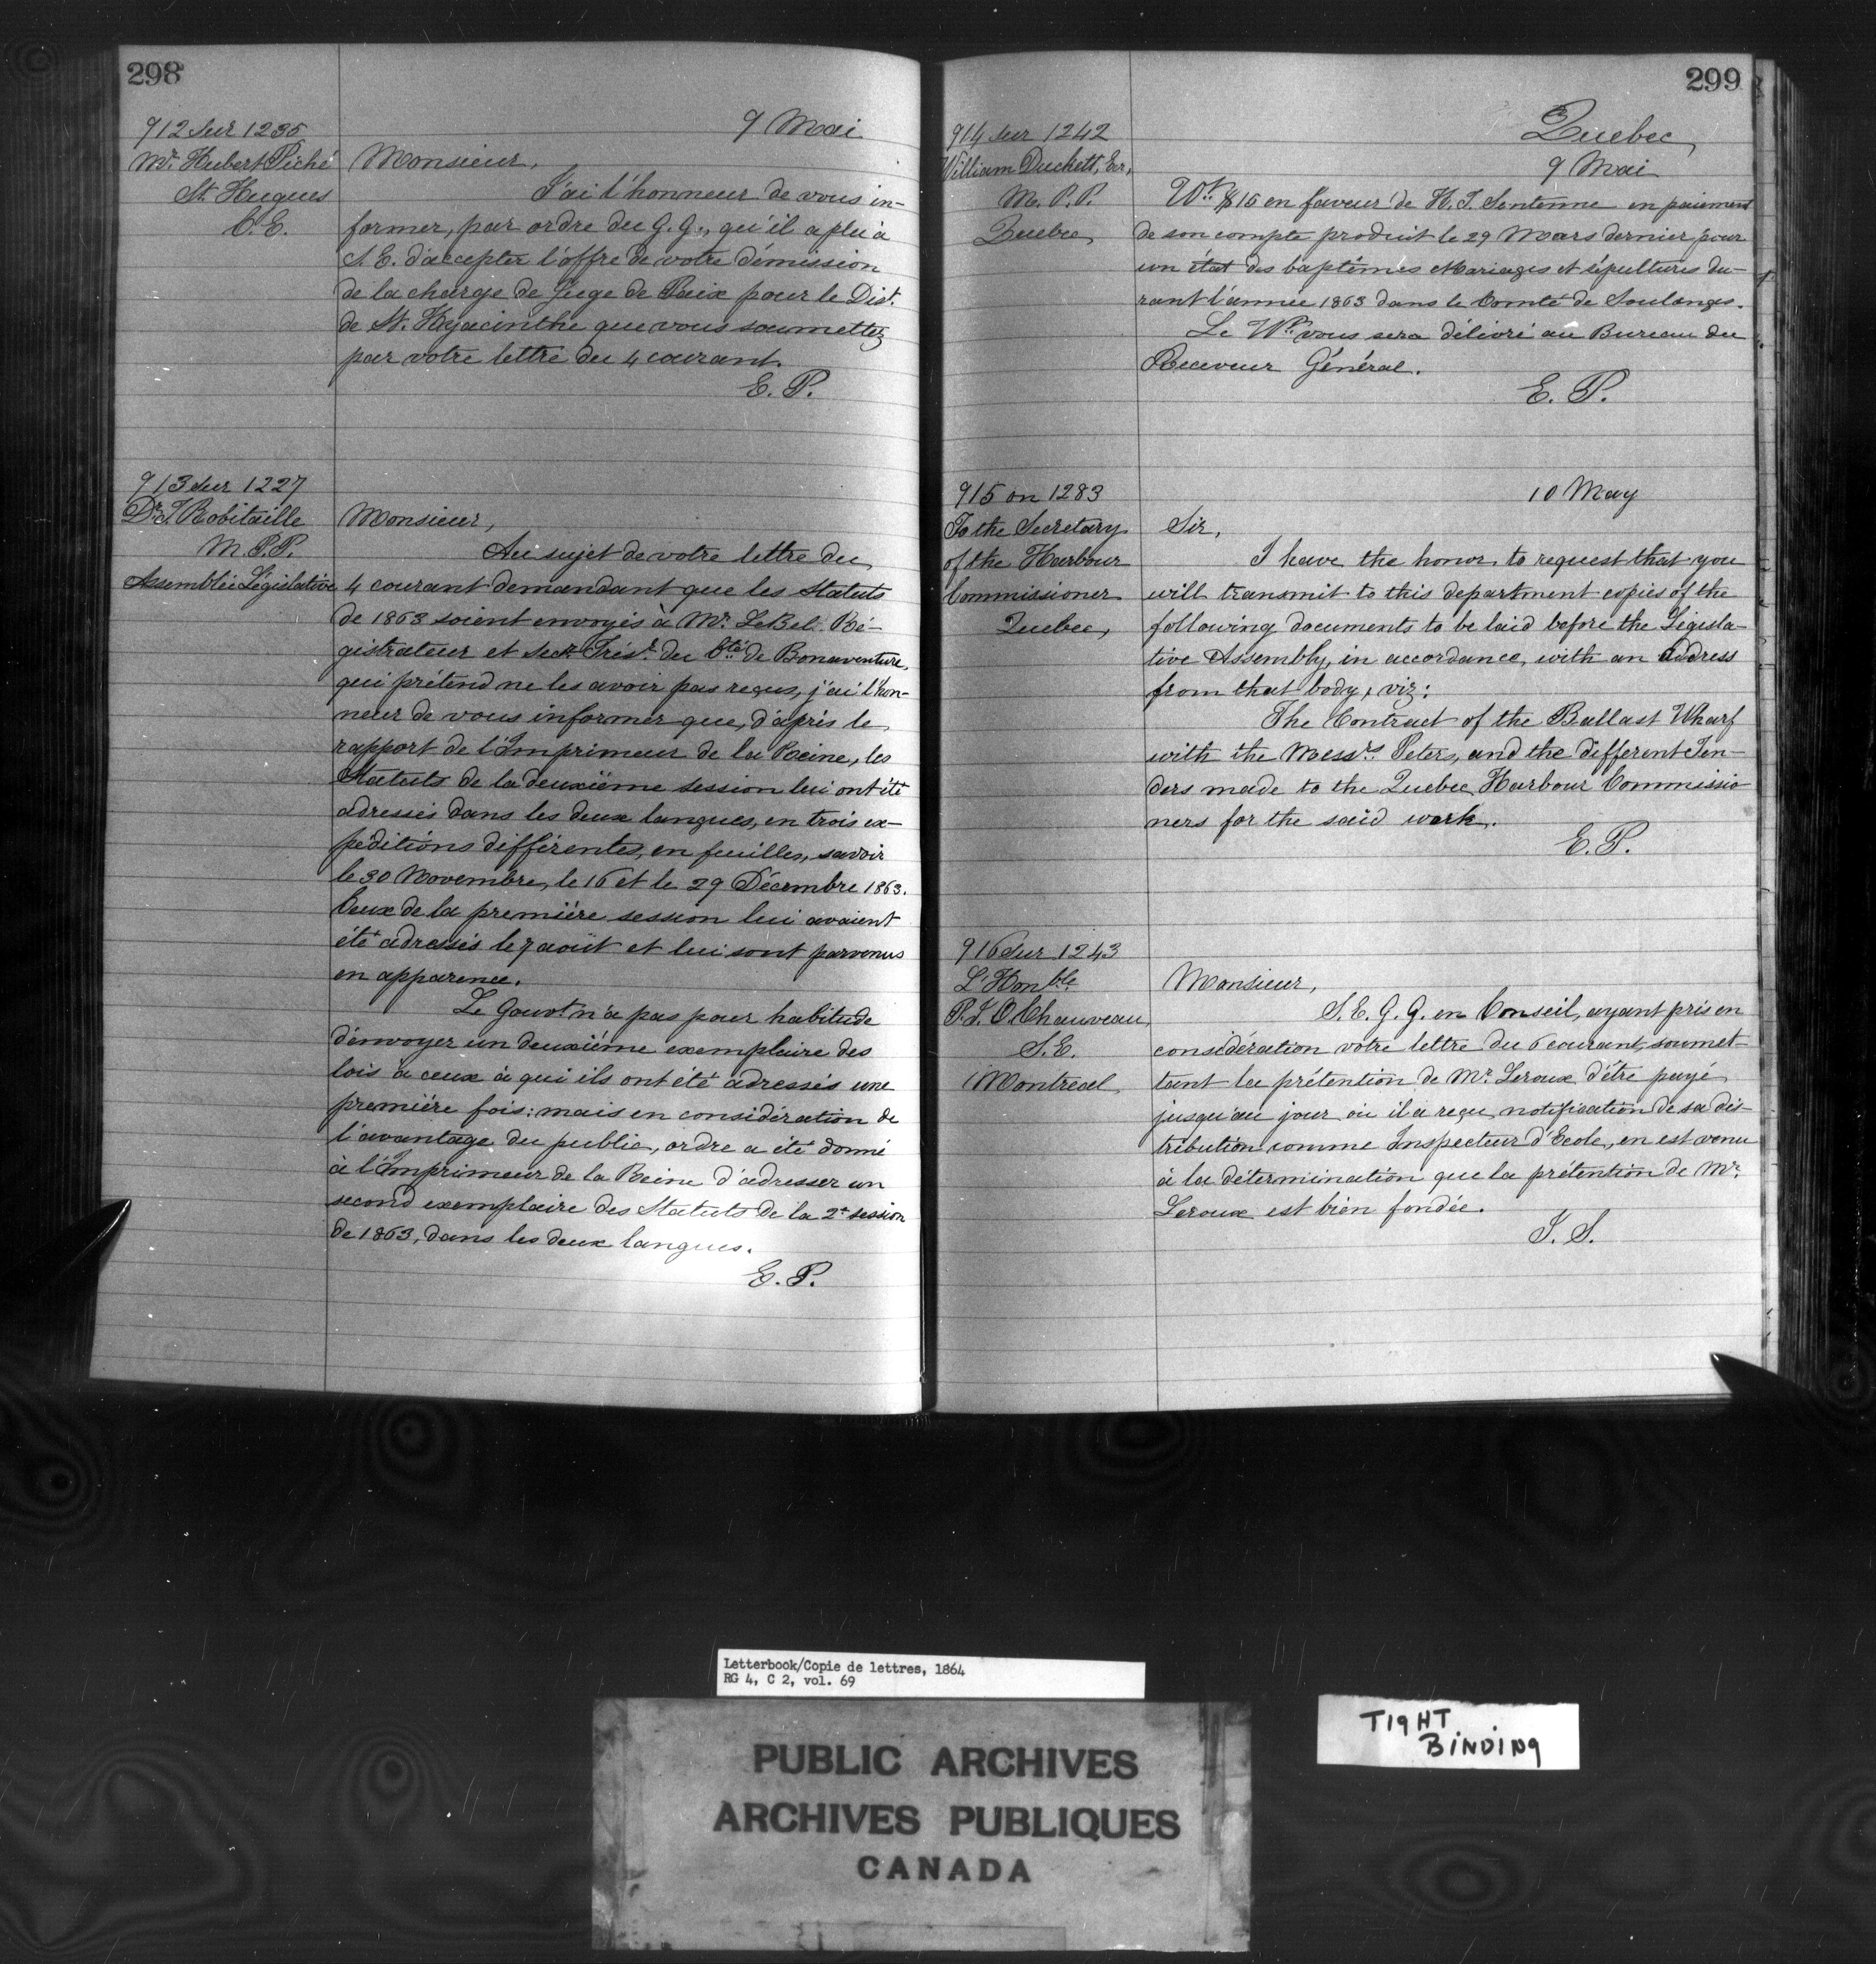 298
9 Mai
912 sur 1235
Mr. Hubert Piché
St. Hugues
C. E.
Monsieur,
J'ai l'honneur de vous in-
former, par ordre du G. G., qu'il a plu à
S. E. d'accepter l'offre de votre démission
de la charge de Juge de Paix pour le Dist.
de St. Hyacinthe que vous soumettez
par votre lettre du 4 courant.
E. P.
913 sur 1227
Dr. T. Robitaille
M. P. P.
Assemblée Législative
Monsieur,
Au sujet de votre lettre du
4 courant demandant que les Statuts
de 1863 soient envoyés à Mr. LeBel Ré-
gistrateur et Secr. Trésr. du Cté de Bonaventure,
qui prétend ne les avoir pas reçus, j'ai l'hon-
neur de vous informer que, d'après le
rapport de l'Imprimeur de la Reine, les
Statuts de la deuxième session lui ont été
adressés dans les deux langues, en trois ex-
péditions différentes, en feuilles, savoir
le 30 Novembre, le 16 et le 29 Décembre 1863.
Ceux de la première session lui avaient
été adressés le 7 août et lui sont parvenus
en apparence.
Le Gouvt. n'a pas pour habitude
d'envoyer un deuxième exemplaire des
lois à ceux à qui ils ont été adressés une
première fois: mais en considération de
l'avantage du public, ordre a été donné
à l'Imprimeur de la Reine d'adresser un
second exemplaire des Statuts de la 2e session
de 1863, dans les deux langues.
E. P.
299
Quebec,
9 Mai
914 sur 1242
William Duckett, Ecr,
M. P. P.
Quebec,
Wt. $15 en faveur de H. J. Sentenne en paiement
de son compte produit le 29 Mars dernier, pour
un état des baptêmes Mariages et sépultures du-
rant l'année 1863 dans le Comté de Soulanges.
Le Wt. vous sera délivré au Bureau du
Receveur Général.
E. P.
915 on 1283
To the Secretary
of the Harbour
Commissioner
Quebec,
10 May
Sir,
I have the honor to request that you
will transmit to this department copies of the
following documents to be laid before the Legisla-
tive Assembly, in accordance, with an address
from that body, viz:
The Contract of the Ballast Wharf
with the Messrs. Peters, and the different Ten-
ders made to the Quebec Harbour Commissio-
ners for the said work.
E. P.
916 sur 1243
L'Honble
P. J. O. Chauveau,
S. E.
Montreal
Monsieur,
S. E. G. G. en Conseil, ayant pris en
considération votre lettre du 6 courant, soumet-
tant la prétention de Mr. Leroux d'être payé
jusqu'au jour où il a reçu notification de sa des-
tribution comme Inspecteur d'Ecole, en est venu
à la détermination que la prétention de Mr.
Leroux est bien fondée.
J. S.
Letterbook/Copie de lettres, 1864
RG 4, C 2, vol. 69
TIGHT
BINDING
PUBLIC ARCHIVES
ARCHIVES PUBLIQUES
CANADA